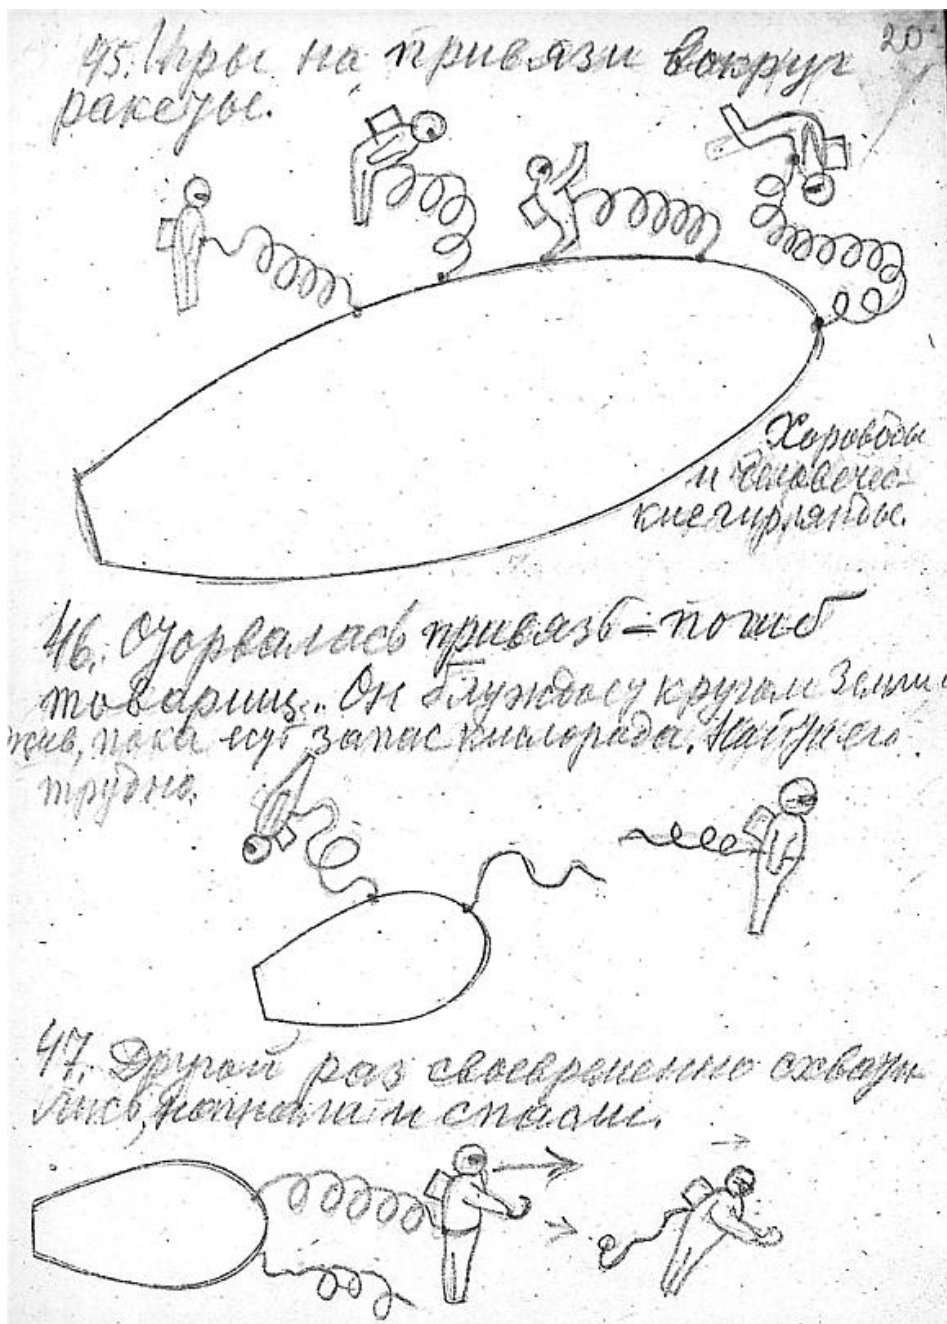 20
45. Игры на привязи вокруг
ракеты.
Хороводы
и человечес-
кие гирлянды.
46. Оторвалась привязь = погиб
товарищ. Он блуждает кругом Земли
жив, пока есть запас кислорода. Найти его
трудно.
47. Другой раз своевременно схвати-
лись, нагнали и спасли.